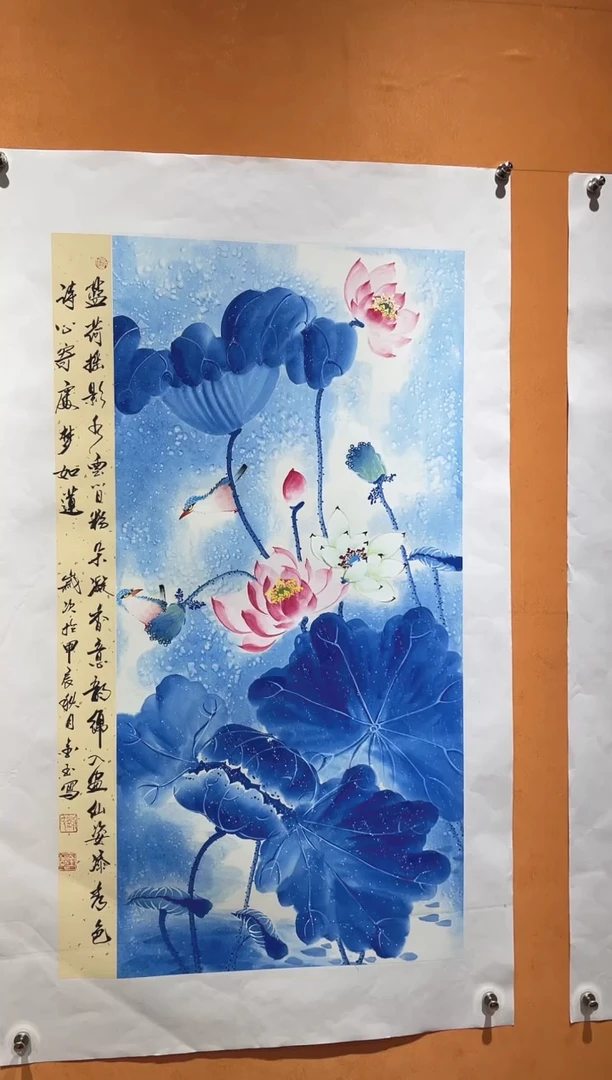 蓝荷摇影水云间粉朵凝香意韵绵入画仙姿添秀色
诗心寄处梦如莲 岁次於甲辰秋月金玉写